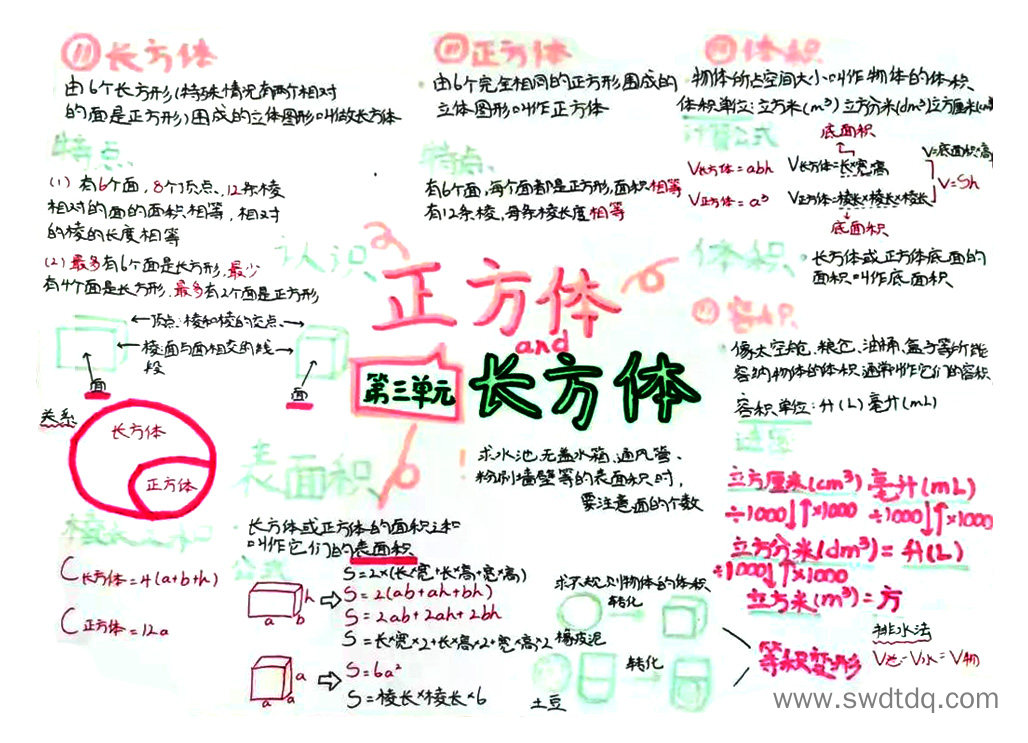 长方体
由6个长方形(特殊情况有两个相对
的面是正方形)围成的立体图形叫做长方体
特点
(1) 有6个面,8个顶点,12条棱
相对的面的面积相等,相对
的棱的长度相等
(2)最多有6个面是长方形,最少
有4个面是长方形,最多有2个面是正方形
正方体
由6个完全相同的正方形围成的
立体图形叫作正方体
特点
有6个面,每个面都是正方形,面积相等
有12条棱,每条棱长度相等
体积
物体所占空间大小叫作物体的体积
体积单位:立方米(m³)立方分米(dm³)立方厘米(cm³)
计算公式
底面积
V长方体=abh
V长方体=长×宽×高
V=底面积×高
V=Sh
V正方体=a³
V正方体=棱长×棱长×棱长
底面积
体积
长方体或正方体底面的
面积叫作底面积
认识
正方体
and
第三单元
长方体
顶点:棱和棱的交点
棱:面与面相交的线
段
面
面
关系
长方体
正方体
像太空舱、粮仓、油桶、盒子等所能
容纳物体的体积,通常叫作它们的容积
容积单位:升(L)毫升(mL)
进率
立方厘米(cm³) 毫升(mL)
÷1000 ×1000 ÷1000 ×1000
立方分米(dm³)=升(L)
÷1000 ×1000
立方米(m³)=方
表面积
求水池,无盖水箱、通风管、
粉刷墙壁等的表面积时,
要注意面的个数
长方体或正方体的面积之和
叫作它们的表面积
公式
棱长之和
C长方体=4(a+b+h)
C正方体=12a
h
a
b
S=2×(长×宽+长×高+宽×高)
S=2(ab+ah+bh)
S=2ab+2ah+2bh
S=长×宽×2+长×高×2+宽×高×2
a
a
a
S=6a²
S=棱长×棱长×6
求不规则物体的体积
转化
橡皮泥
转化
土豆
等积变形
排水法
V总-V水=V物
www.swdtdq.com